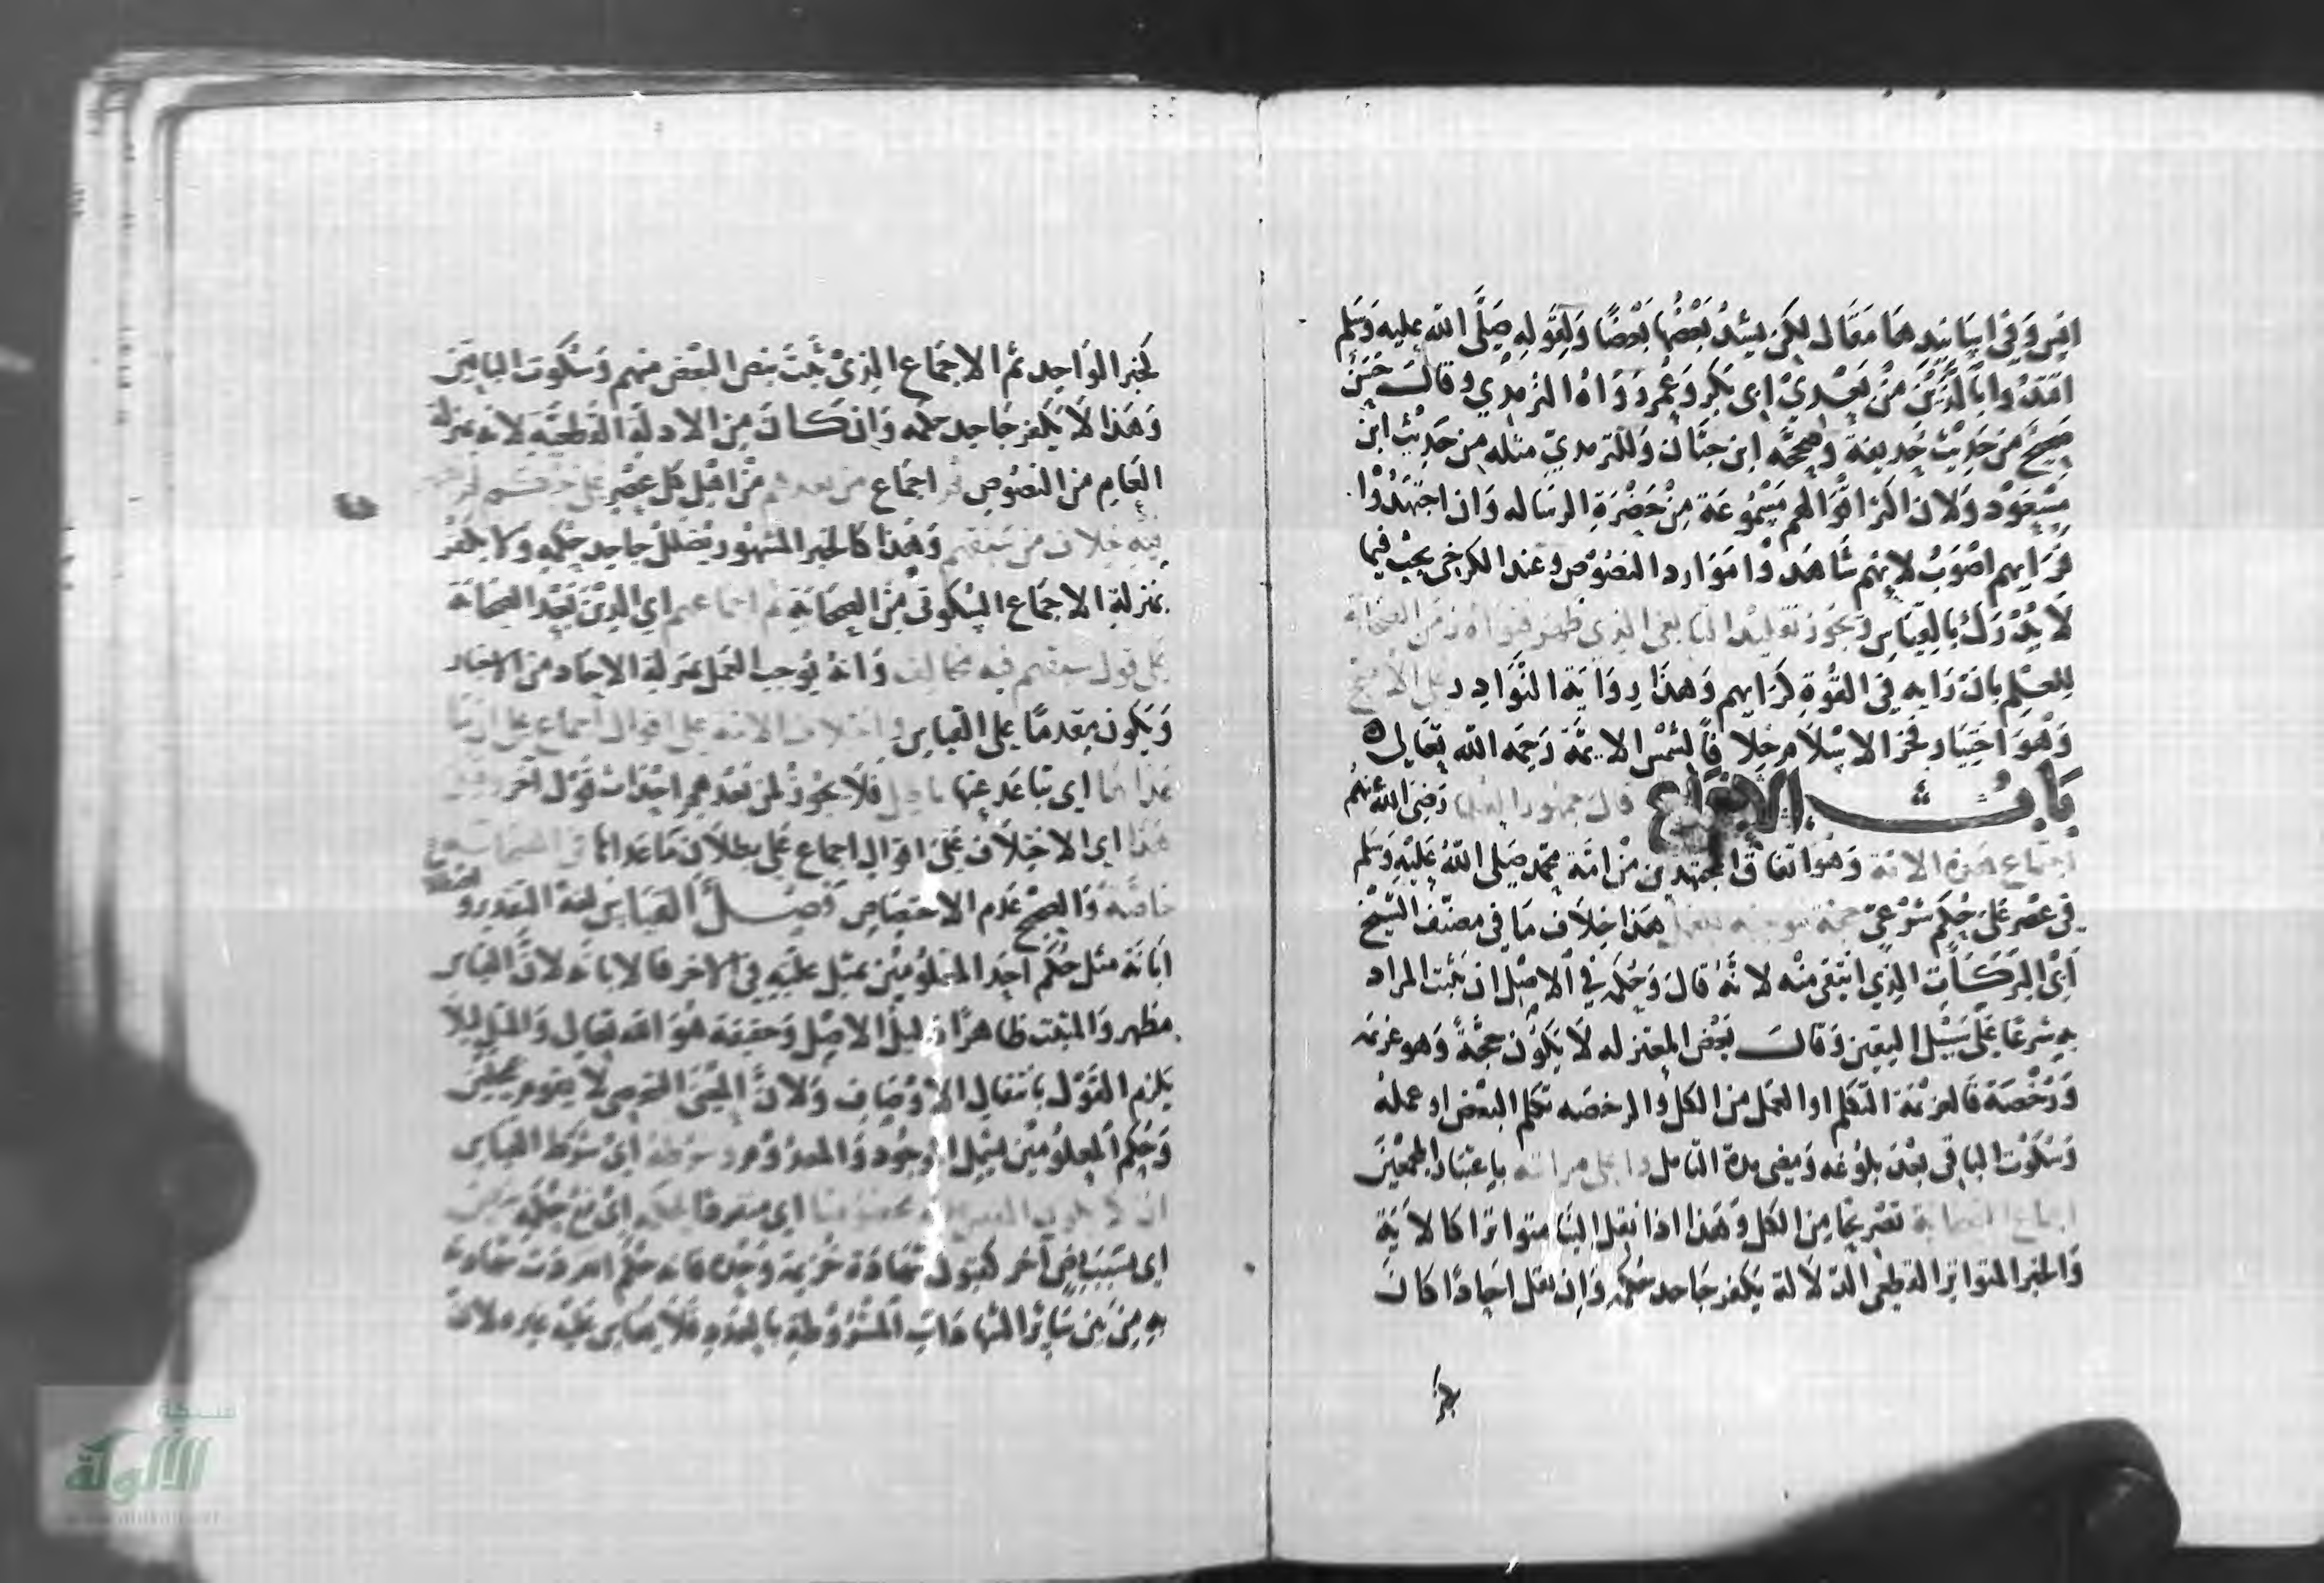 انس وفي اسانيدها مقال لكن يشد بعضها بعضا ولقوله صلى الله عليه وسلم
اقتدوا بالذين من بعدي ابي بكر وعمر رواه الترمذي وقال حسن
صحيح من حديث حذيفة وصححه ابن حبان وللترمذي مثله من حديث ابن
مسعود ولان اكثر اقوالهم مسموعة من حضرة الرساله وان اجتهدوا
فرايهم اصوب لانهم شاهدوا موارد النصوص وعند الكرخي يجب فيما
لا يدرك بالقياس ويجوز تقليد التابعي الذي ظهر فتواه زمن الصحابة
للعلم بان رايه في القوة كرايهم وهذا رواية النوادر على الاصح
وهو اختيار فخر الاسلام خلافا لشمس الايمة رحمه الله تعالى
باب الاجماع قال جمهور العلما رضي الله عنهم
اجماع هذه الامة وهو اتفاق المجتهدين من امة محمد صلى الله عليه وسلم
في عصر على حكم شرعي حجة موجبة للعمل هذا خلاف ما في مصنف الشيخ
ابي البركات الذي انتقى منه لانه قال وحكمه في الاصل ان يثبت المراد
به شرعا على سبيل اليقين وقالت بعض المعتزله لا يكون حجة وهو عزيمه
ورخصة فالعزيمة التكلم او العمل من الكل والرخصه تكلم البعض او عمله
وسكوت الباقي بعد بلوغه ومضي مدة التامل واعلى مراتبه باعتبار المجمعين
اجماع الصحابة تصريحا من الكل وهذا اذا نقل الينا متواترا كالاية
والخبر المتواتر القطعي الدلالة يكفر جاحد حكمه وان نقل احادا كان
كخبر الواحد ثم الاجماع الذي ثبت بنص البعض منهم وسكوت الباقين
وهذا لا يكفر جاحد حكمه وان كان من الادلة القطعية لانه بمنزلة
العام من النصوص ثم اجماع من بعدهم من اهل كل عصر على حكم لم
فيه خلاف من سبقهم وهذا كالخبر المشهور يضلل جاحد حكمه ولا يكفر
بمنزلة الاجماع السكوتي من الصحابة ثم اجماعهم اي الذين بعد الصحابة
على قول سبقهم فيه مخالف وانه يوجب العمل بمنزلة الاحاد من الاخبار
ويكون مقدما على القياس واختلاف الامة على اقوال اجماع على ان ما
عداها اي تباعد عنها باطل فلا يجوز لمن بعدهم احداث قول آخر
هذا اي الاختلاف على اقوال اجماع على بطلان ما عداها في الصحابة
خاصة والصحيح عدم الاختصاص فصل القياس لغة التقدير و
ابانة مثل حكم احد المعلومين بمثل علته في الآخر فالابانة لان القياس
مظهر والمثبت ظاهرا دليل الاصل وحقيقة هو الله تعالى والمثل ليلا
يلزم القول بانتقال الاوصاف ولان المعنى الشخصي لا يقوم بمحلين
وحكم المعلومين يشمل الوجود والمعدوم وشرطه اي شرط القياس
ان لا يكون الاصل مخصوصا اي منفردا بحكمه اي مع حكمه
اي بسبب نص آخر كقبول شهادة خزيمة وحده فانه حكم افردت شهادة
به من بين سائر الشهادات المشروطة بالعدد فلا يقاس عليه غيره لان